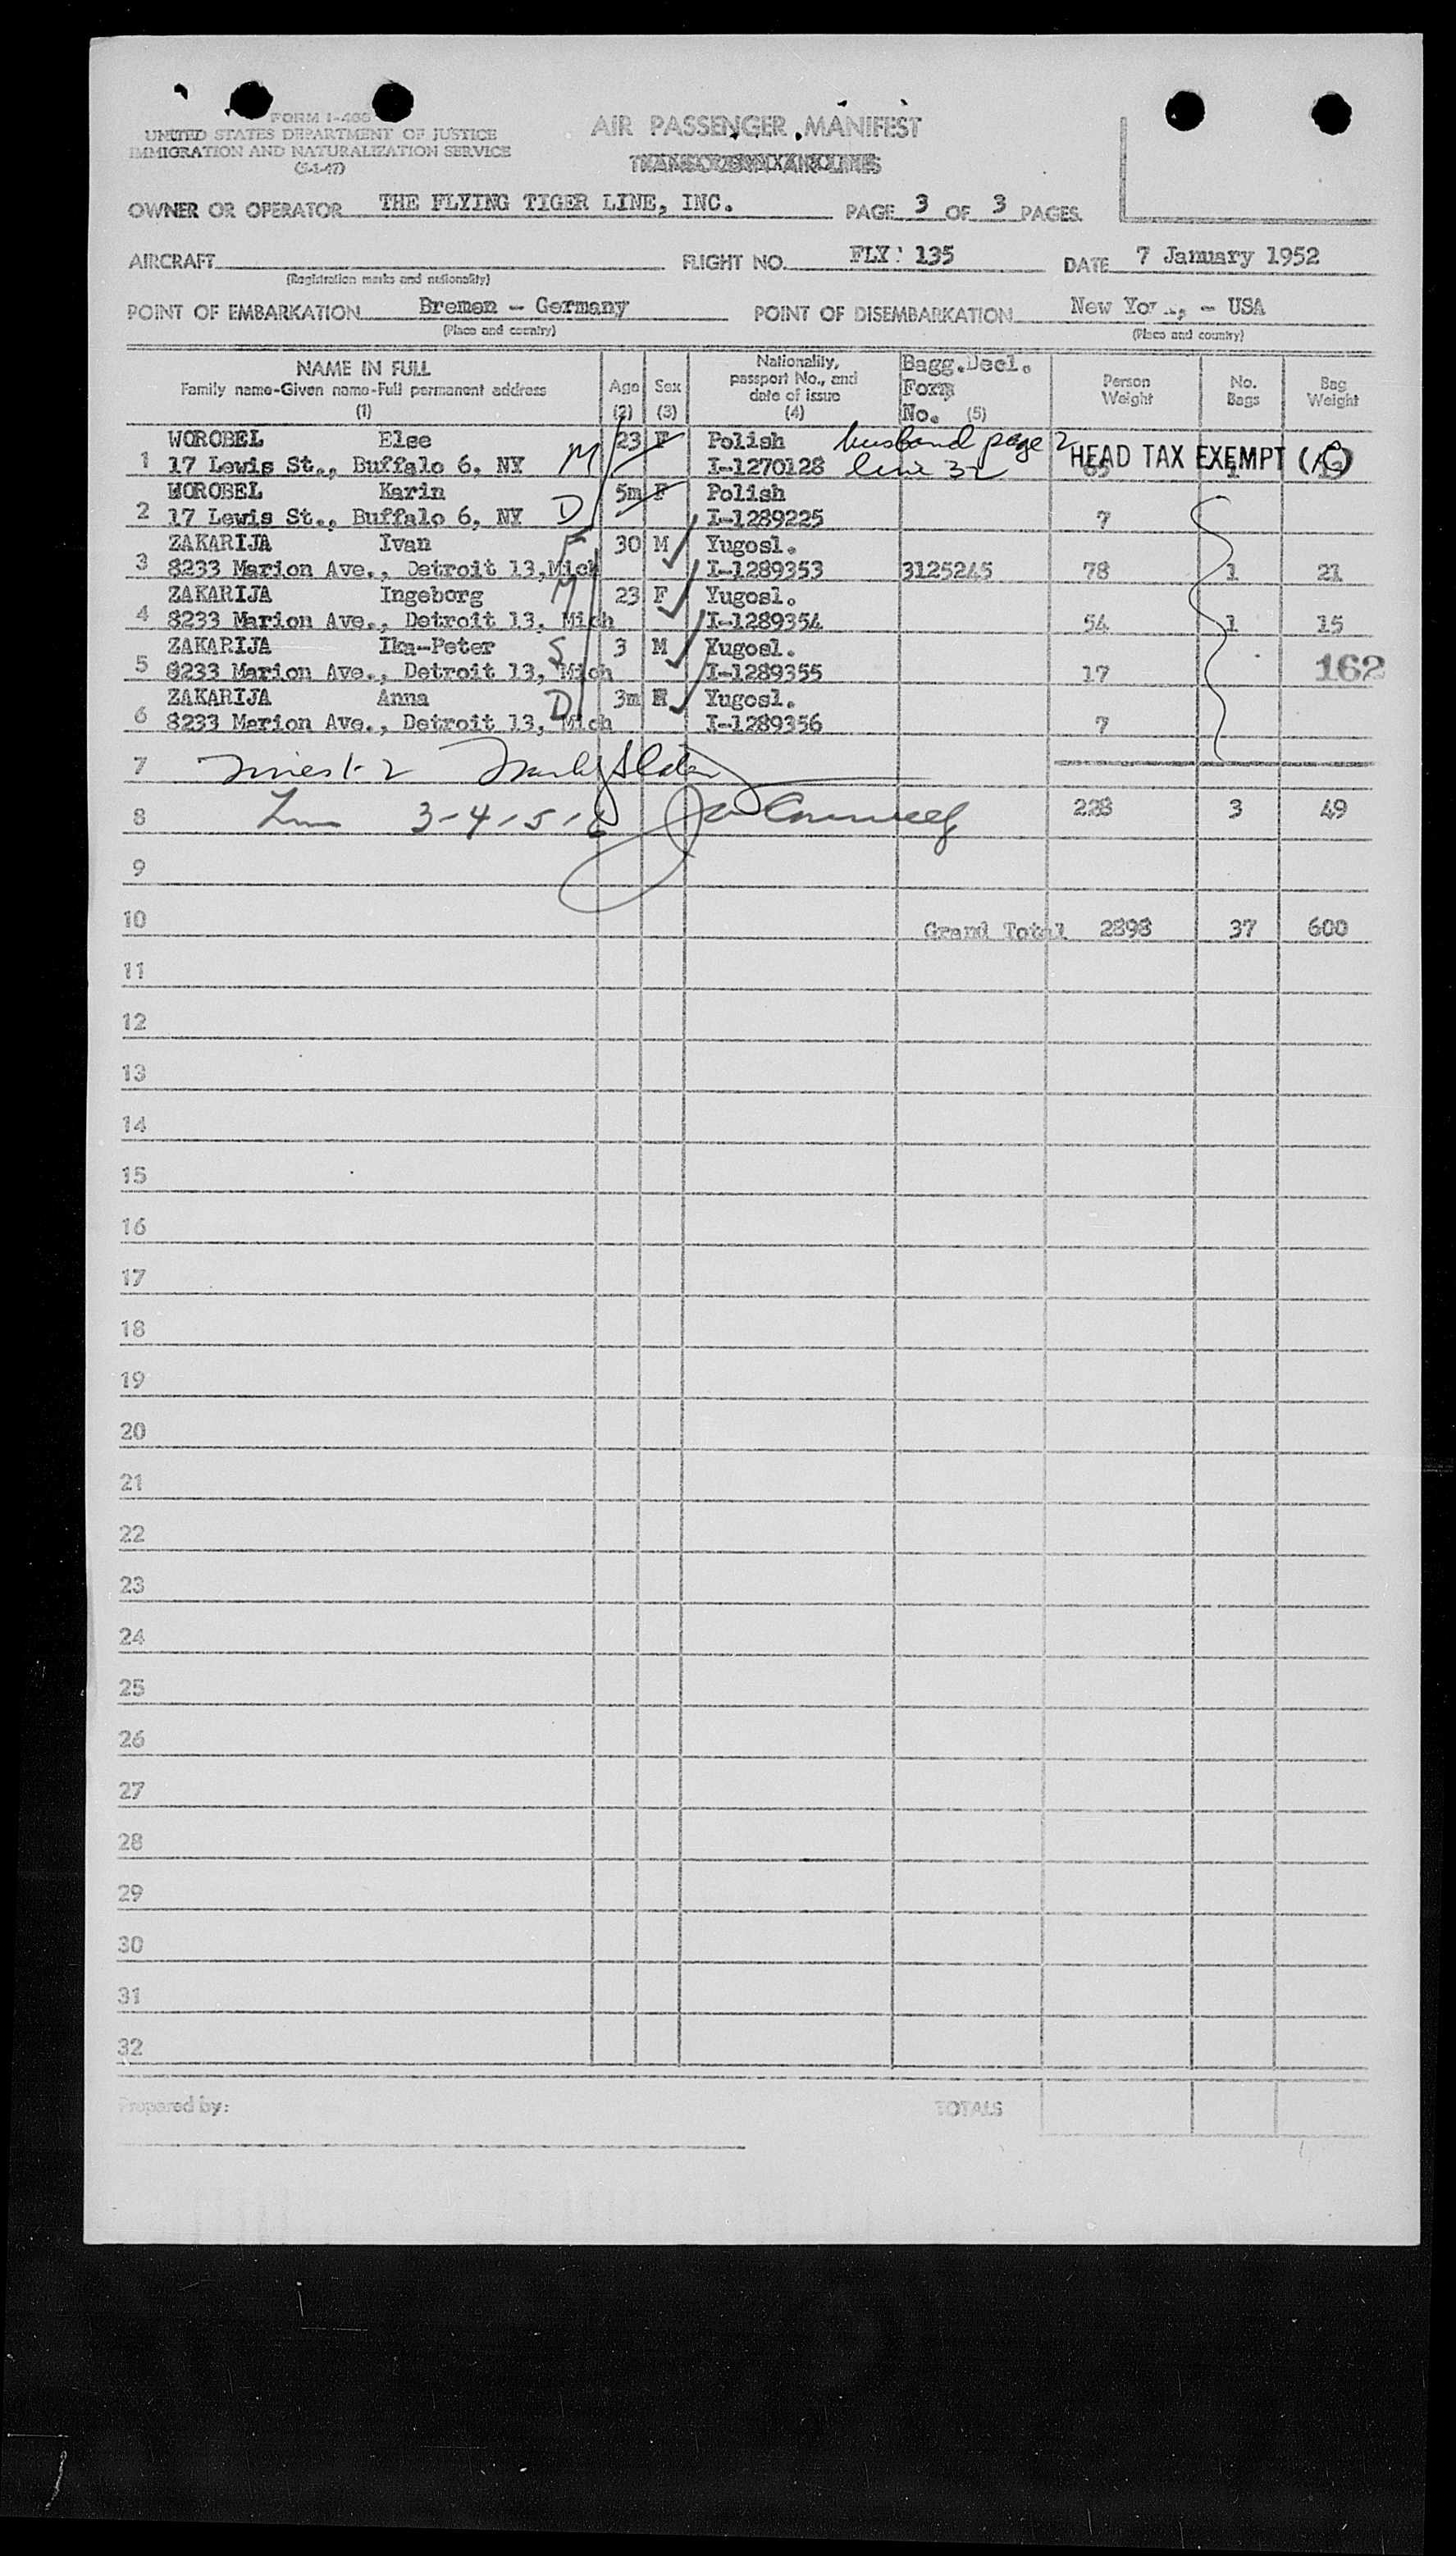 FORM I-466
UNITED STATES DEPARTMENT OF JUSTICE
IMMIGRATION AND NATURALIZATION SERVICE
(5-1-47)
AIR PASSENGER MANIFEST
OWNER OR OPERATOR THE FLYING TIGER LINE, INC. PAGE 3 OF 3 PAGES
AIRCRAFT FLIGHT NO. 135 DATE 7 January 1952
(Registration marks and nationality)
POINT OF EMBARKATION Bremen - Germany POINT OF DISEMBARKATION New - USA
(Place and country) (Place and country)
NAME IN FULL
Family name-Given name-Full permanent address
(1)
Age
(2)
Sex
(3)
Nationality,
passport No., and
date of issue
(4)
Bagg.Decl.
Form
No. (5)
Person
Weight
No.
Bags
Bag
Weight
WOROBEL Else 23 F Polish husband page 2
1 17 Lewis St., Buffalo 6, NY M I-1270128 line 32 HEAD TAX EXEMPT 65 1
WOROBEL Karin 5m F Polish
2 17 Lewis St., Buffalo 6, NY D I-1289225 7
ZAKARIJA Ivan F 30 M Yugosl.
3 8233 Marion Ave., Detroit 13, Mich I-1289353 3125245 78 1 21
ZAKARIJA Ingeborg M 23 F Yugosl.
4 8233 Marion Ave., Detroit 13, Mich I-1289354 54 1 15
ZAKARIJA Ika-Peter S 3 M Yugosl.
5 8233 Marion Ave., Detroit 13, Mich I-1289355 17 162
ZAKARIJA Anna D 3m Yugosl.
6 8233 Marion Ave., Detroit 13, Mich I-1289356 7
7
8 3-4-5-6 228 3 49
9
10 Grand Total 2898 37 600
11
12
13
14
15
16
17
18
19
20
21
22
23
24
25
26
27
28
29
30
31
32
Prepared by: TOTALS